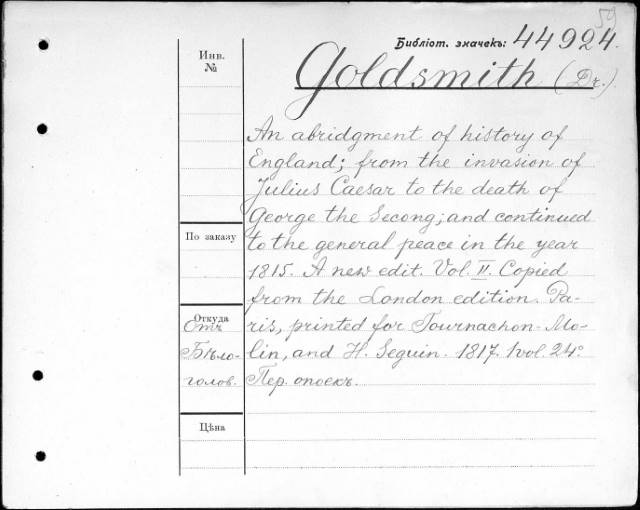 59
Библіот. значекъ: 44924.
Goldsmith (Dr.)
Инв.
№
An abridgment of history of
England; from the invasion of
Julius Caesar to the death of
George the Secong; and continued
По заказу
to the general peace in the year
1815. A new edit. Vol. II. Copied
from the London edition. Pa-
Откуда
Отъ
ris, printed for Tournachon-Mo-
Бѣло-
lin, and H. Seguin. 1817. 1 vol. 24°
голов.
Пер. опоекъ.
Цѣна